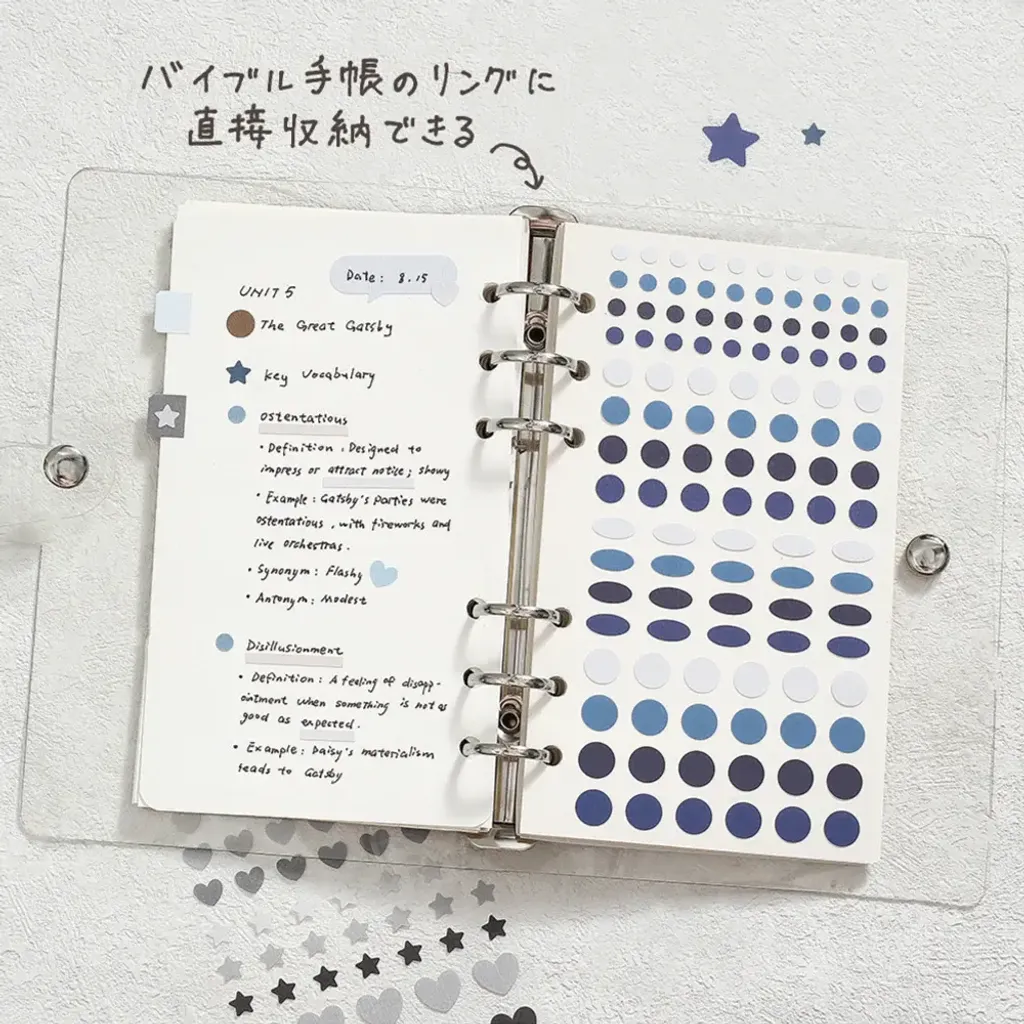 バイブル手帳のリングに
直接収納できる
Date: 8.15
UNIT 5
The Great Gatsby
key vocabulary
ostentatious
• Definition : Designed to
impress or attract notice; showy
• Example : Gatsby's parties were
ostentatious , with fireworks and
live orchestras.
• Synonym : Flashy
• Antonym : Modest
Disillusionment
• Definition : A feeling of disapp-
ointment when something is not as
good as expected.
• Example : Daisy's materialism
leads to Gatsby